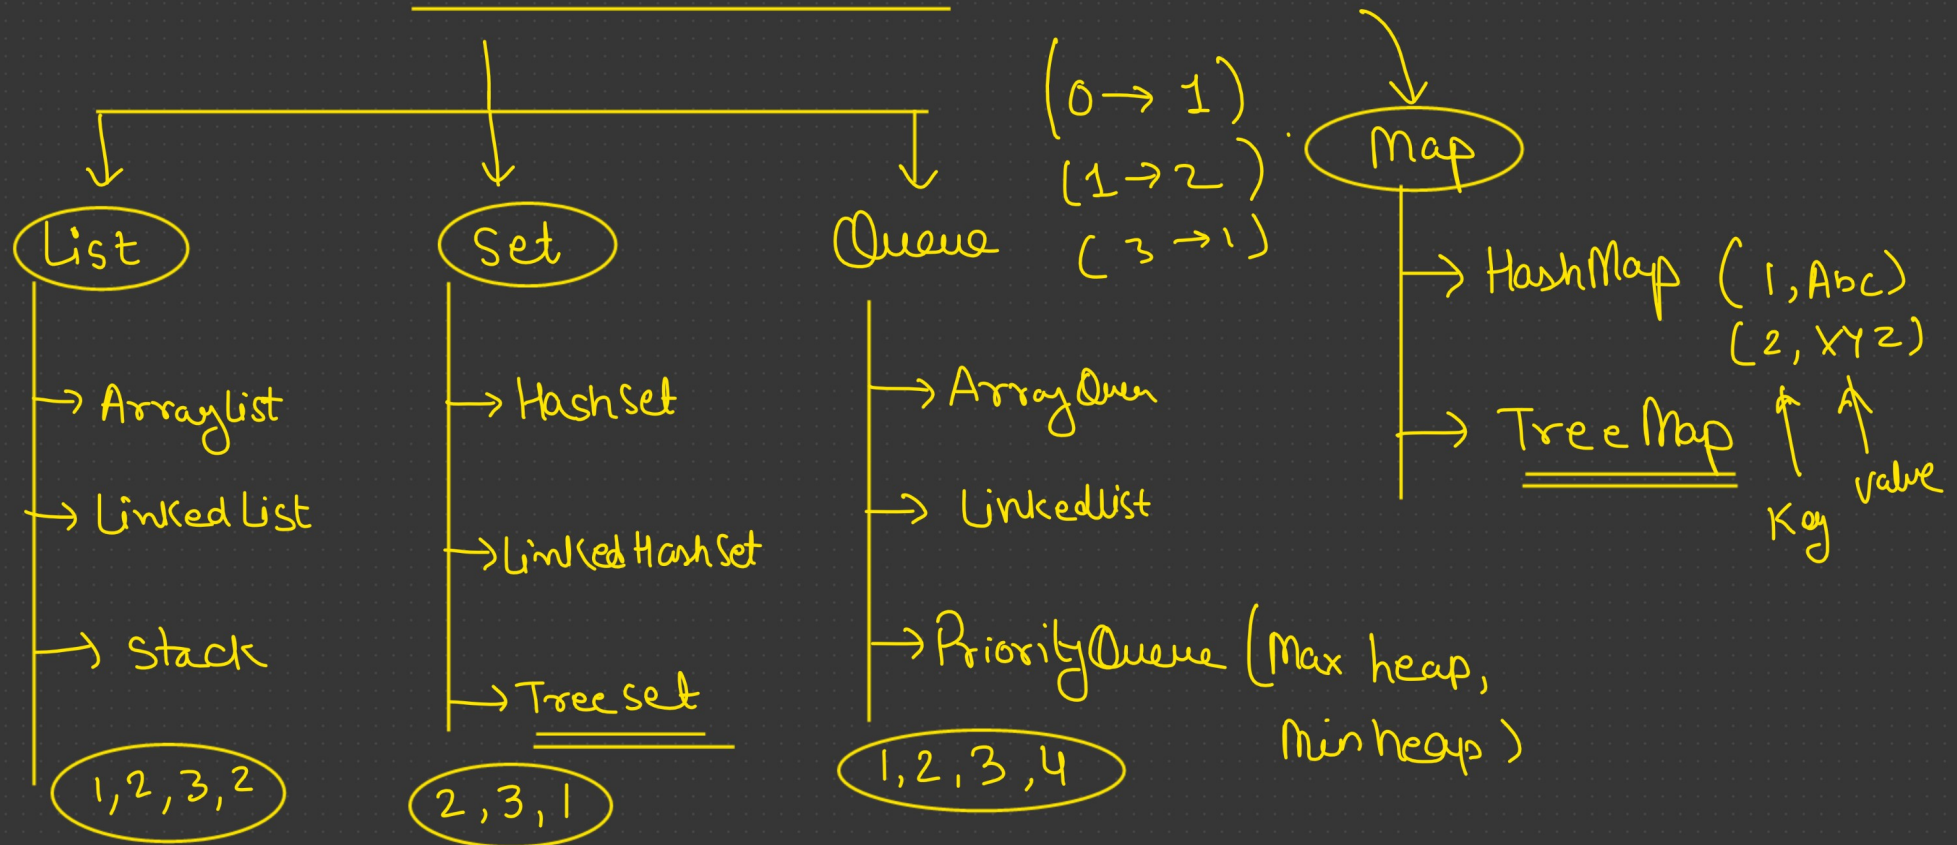 List
ArrayList
Linked List
Stack
1, 2, 3, 2
Set
HashSet
Linked HashSet
Tree set
2, 3, 1
Queue
Array Queu
Linkedlist
PriorityQueue (Max heap,
Min heap)
1, 2, 3, 4
(0 → 1)
(1 → 2)
(3 → 1)
Map
HashMap (1, Abc)
(2, XYZ)
Tree Map
Key
value